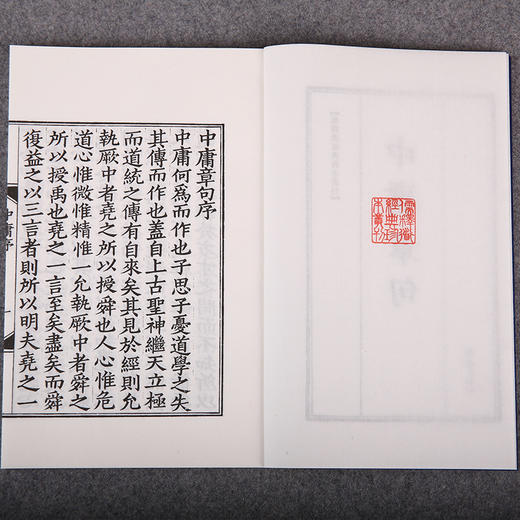 中庸章句序
中庸何為而作也子思子憂道學之失
其傳而作也蓋自上古聖神繼天立極
而道統之傳有自來矣其見於經則允
執厥中者堯之所以授舜也人心惟危
道心惟微惟精惟一允執厥中者舜之
所以授禹也堯之一言至矣盡矣而舜
復益之以三言者則所以明夫堯之一
中庸序
一
儒釋道
經典攷
本叢刊